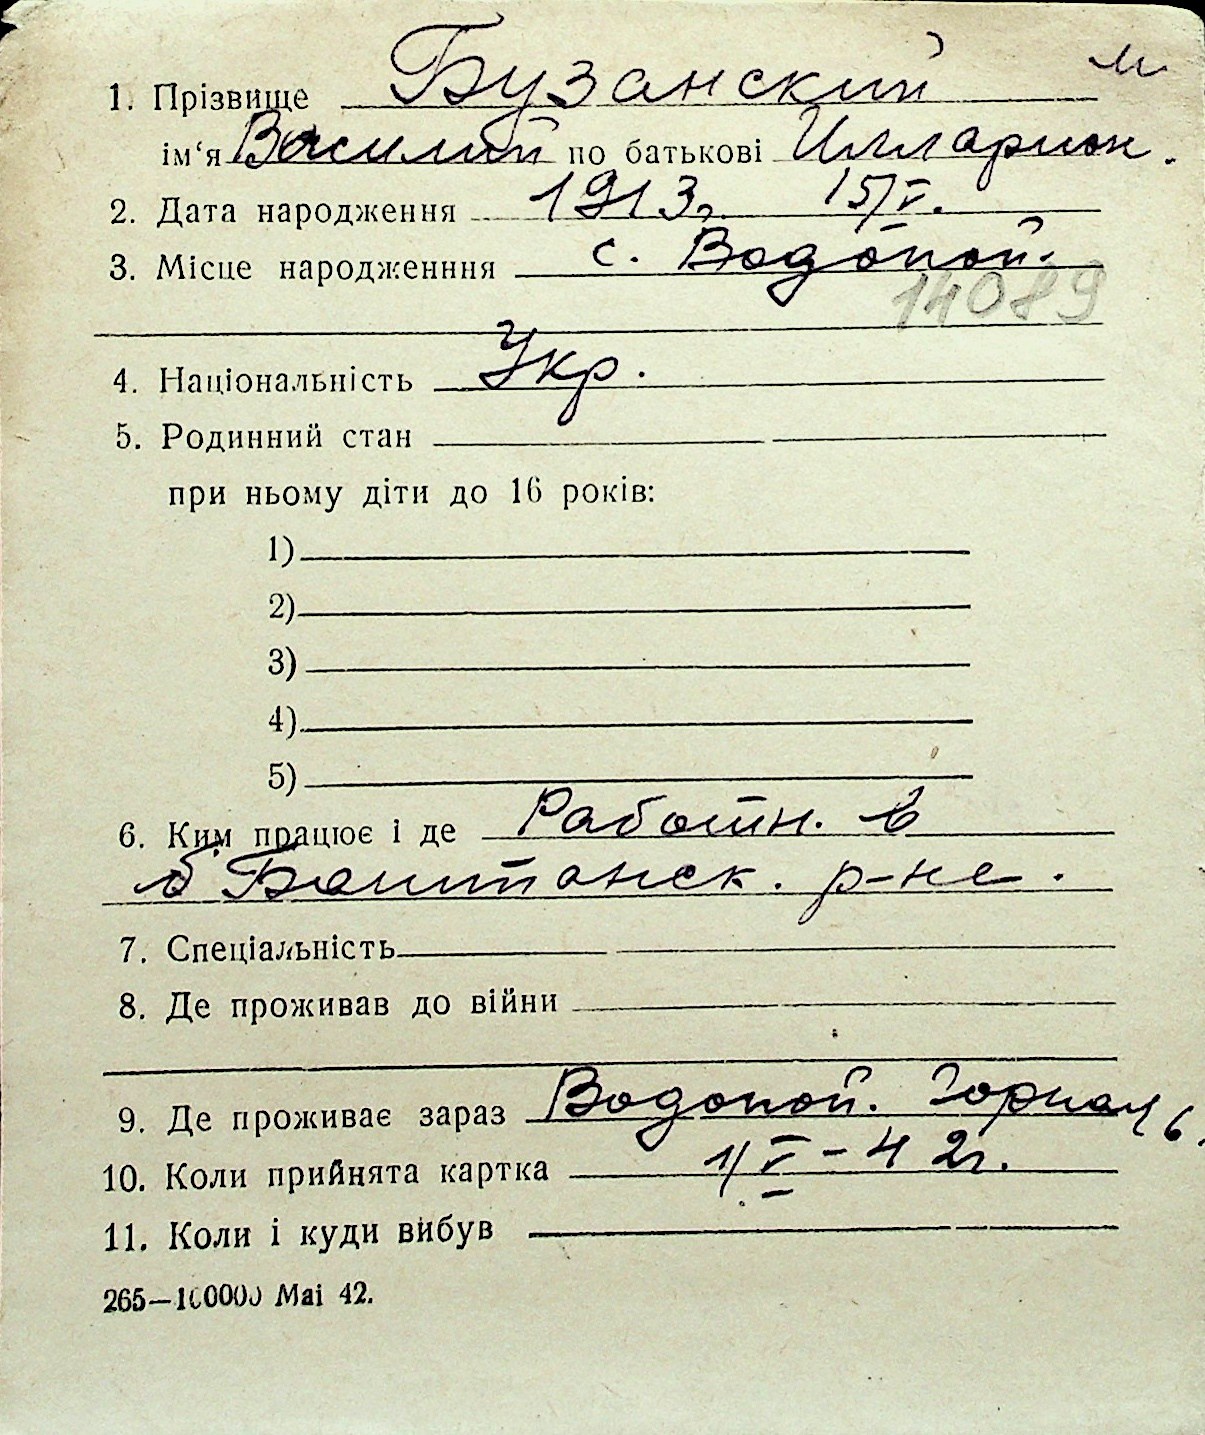 м
1. Прізвище Бузанский
ім‘я Василий по батькові Илларион.
2. Дата народження 1913г. 15/V.
3. Місце народженння с. Водопой.
14089
4. Національність Укр.
5. Родинний стан
при ньому діти до 16 років:
1)
2)
3)
4)
5)
6. Ким працює і де Работн. в
Баштанск. р-не.
7. Спеціальність
8. Де проживав до війни
9. Де проживає зараз Водопой. 6.
10. Коли прийнята картка 1/V-42г.
11. Коли і куди вибув
265—100000 Mai 42.